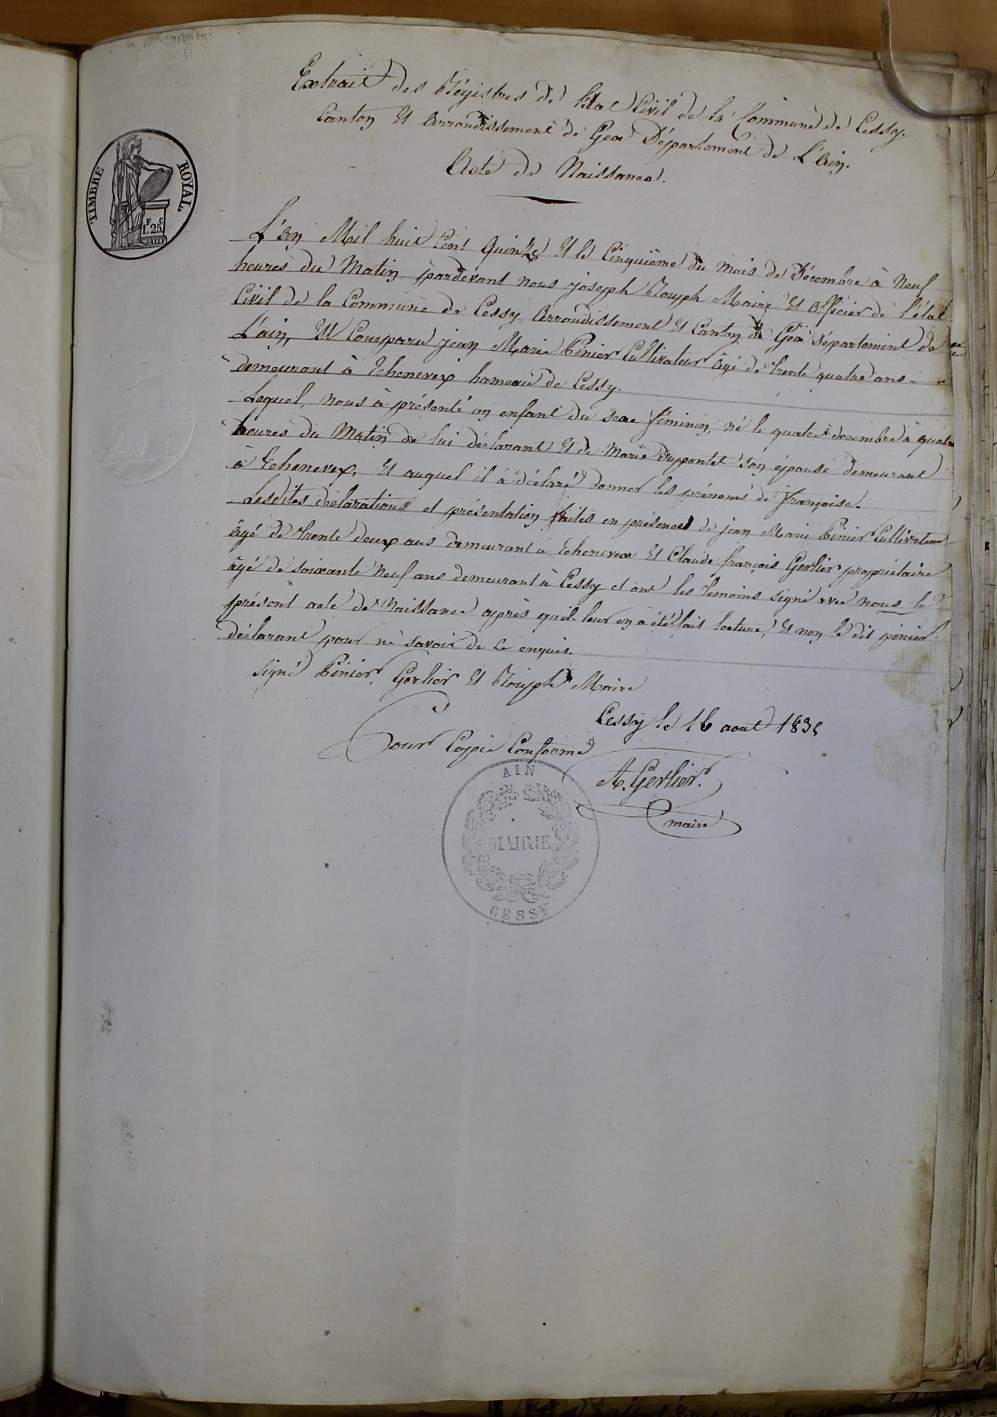 Extrait des Régistres de l'état Civil de la Commune de Cessy.
Canton et Arrondissement de Gex Département de L'ain.
Acte de Naissance.
TIMBRE ROYAL
1.F 25.C
L'an Mil huit Cent Quinze et le Cinquième du mois de Décembre à Neuf
heures du Matin pardevant nous joseph Maire et officier de l'état
Civil de la Commune de Cessy Arrondissement et Canton de Gex Département de
L'ain, est Comparu jean Marie Pinier Cultivateur âgé de trente quatre ans
demeurant à Echenevex hameau de Cessy.
Lequel, nous à présenté un enfant du sexe féminin, né le quatre décembre à quatre
heures du Matin de lui déclarant et de Marie Dupontet son épouse demeurant
à Echenevex, et auquel il à déclaré donner les prénoms de françoise.
Lesdites déclarations et présentation faites en présence de jean Marie Pinier Cultivateur
âgé de trente deux ans demeurant à Echenevex et Claude françois Gerlier propriétaire
âgé de soixante Neuf ans demeurant à Cessy et ont les témoins signé avec nous le
présent acte de Naissance après quil leur en à été fait lecture, et non le dit pinier
déclarant pour ne savoir de ce enquis.
Signé Pinier, Gerlier et Maire
Cessy le 16 aout 1835
Pour Copie Conforme
A. Gerlier.
maire
AIN
MAIRIE
CESSY